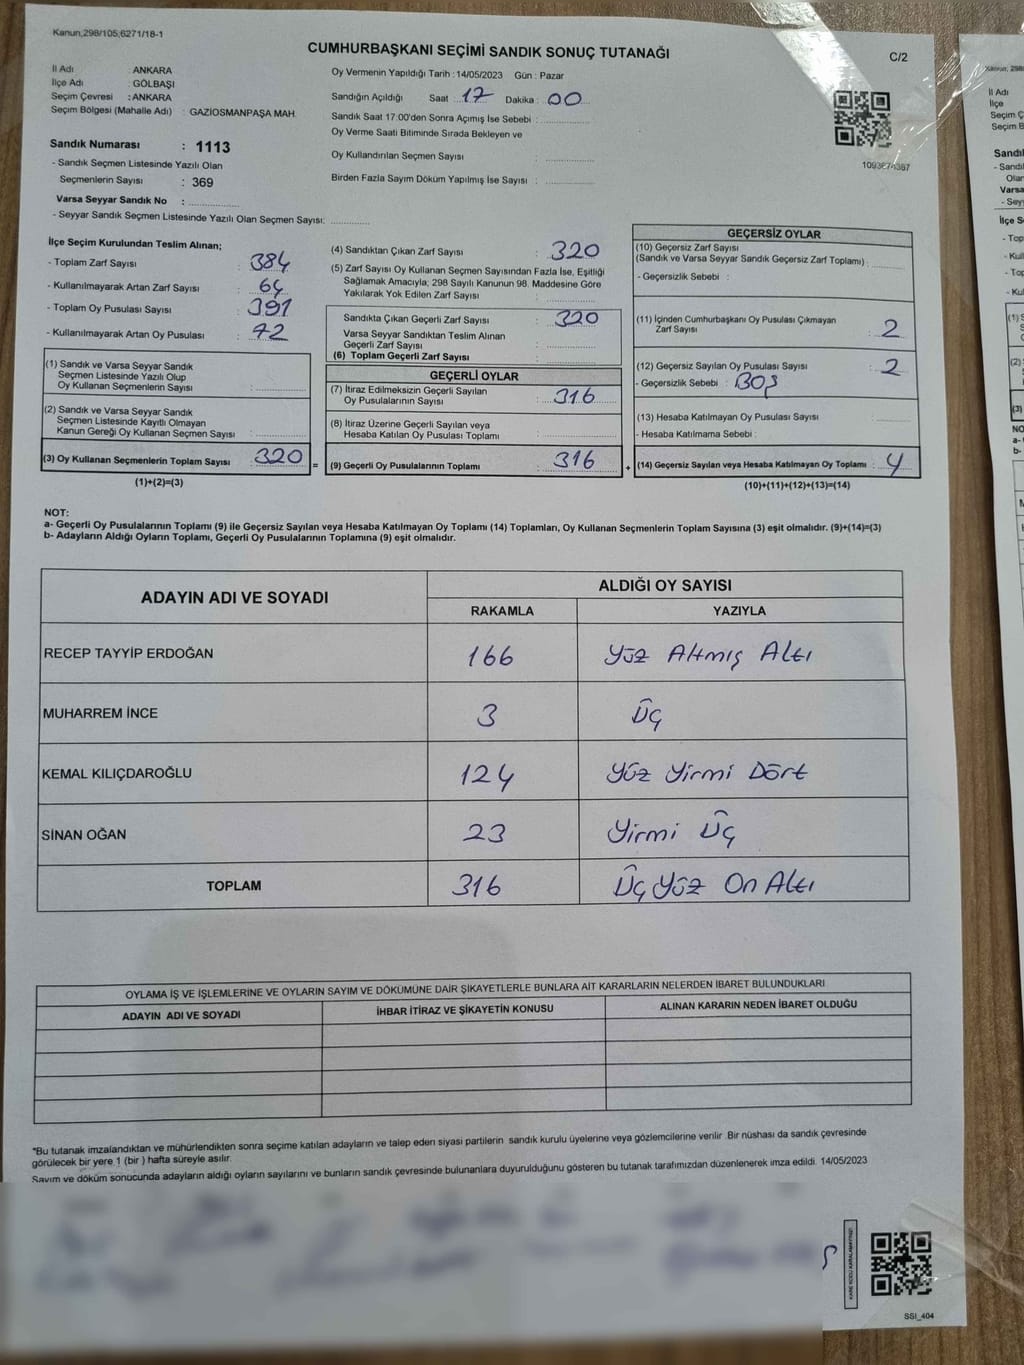 Kanun,298/105,6271/18-1
CUMHURBAŞKANI SEÇİMİ SANDIK SONUÇ TUTANAĞI
C/2
İl Adı : ANKARA
İlçe Adı : GÖLBAŞI
Seçim Çevresi : ANKARA
Seçim Bölgesi (Mahalle Adı) : GAZİOSMANPAŞA MAH.
Sandık Numarası : 1113
- Sandık Seçmen Listesinde Yazılı Olan
Seçmenlerin Sayısı : 369
Varsa Seyyar Sandık No :
- Seyyar Sandık Seçmen Listesinde Yazılı Olan Seçmen Sayısı:
Oy Vermenin Yapıldığı Tarih : 14/05/2023 Gün : Pazar
Sandığın Açıldığı Saat : 17 Dakika : 00
Sandık Saat 17:00'den Sonra Açılmış İse Sebebi :
Oy Verme Saati Bitiminde Sırada Bekleyen ve
Oy Kullandırılan Seçmen Sayısı :
Birden Fazla Sayım Döküm Yapılmış İse Sayısı :
İlçe Seçim Kurulundan Teslim Alınan;
- Toplam Zarf Sayısı : 384
- Kullanılmayarak Artan Zarf Sayısı : 64
- Toplam Oy Pusulası Sayısı : 391
- Kullanılmayarak Artan Oy Pusulası : 72
(1) Sandık ve Varsa Seyyar Sandık
Seçmen Listesinde Yazılı Olup
Oy Kullanan Seçmenlerin Sayısı :
(2) Sandık ve Varsa Seyyar Sandık
Seçmen Listesinde Kayıtlı Olmayan
Kanun Gereği Oy Kullanan Seçmen Sayısı :
(3) Oy Kullanan Seçmenlerin Toplam Sayısı : 320
(1)+(2)=(3)
(4) Sandıktan Çıkan Zarf Sayısı : 320
(5) Zarf Sayısı Oy Kullanan Seçmen Sayısından Fazla İse, Eşitliği
Sağlamak Amacıyla; 298 Sayılı Kanunun 98. Maddesine Göre
Yakılarak Yok Edilen Zarf Sayısı :
Sandıkta Çıkan Geçerli Zarf Sayısı : 320
Varsa Seyyar Sandıktan Teslim Alınan
Geçerli Zarf Sayısı :
(6) Toplam Geçerli Zarf Sayısı :
GEÇERLİ OYLAR
(7) İtiraz Edilmeksizin Geçerli Sayılan
Oy Pusulalarının Sayısı : 316
(8) İtiraz Üzerine Geçerli Sayılan veya
Hesaba Katılan Oy Pusulası Toplamı :
= (9) Geçerli Oy Pusulalarının Toplamı : 316 +
GEÇERSİZ OYLAR
(10) Geçersiz Zarf Sayısı
(Sandık ve Varsa Seyyar Sandık Geçersiz Zarf Toplamı) :
- Geçersizlik Sebebi :
(11) İçinden Cumhurbaşkanı Oy Pusulası Çıkmayan
Zarf Sayısı : 2
(12) Geçersiz Sayılan Oy Pusulası Sayısı : 2
- Geçersizlik Sebebi : BOŞ
(13) Hesaba Katılmayan Oy Pusulası Sayısı
- Hesaba Katılmama Sebebi :
(14) Geçersiz Sayılan veya Hesaba Katılmayan Oy Toplamı : 4
(10)+(11)+(12)+(13)=(14)
NOT:
a- Geçerli Oy Pusulalarının Toplamı (9) ile Geçersiz Sayılan veya Hesaba Katılmayan Oy Toplamı (14) Toplamları, Oy Kullanan Seçmenlerin Toplam Sayısına (3) eşit olmalıdır. (9)+(14)=(3)
b- Adayların Aldığı Oyların Toplamı, Geçerli Oy Pusulalarının Toplamına (9) eşit olmalıdır.
ADAYIN ADI VE SOYADI
ALDIĞI OY SAYISI
RAKAMLA YAZIYLA
RECEP TAYYİP ERDOĞAN 166 Yüz Altmış Altı
MUHARREM İNCE 3 Üç
KEMAL KILIÇDAROĞLU 124 Yüz Yirmi Dört
SİNAN OĞAN 23 Yirmi Üç
TOPLAM 316 Üç Yüz On Altı
OYLAMA İŞ VE İŞLEMLERİNE VE OYLARIN SAYIM VE DÖKÜMÜNE DAİR ŞİKAYETLERLE BUNLARA AİT KARARLARIN NELERDEN İBARET BULUNDUKLARI
ADAYIN ADI VE SOYADI İHBAR İTİRAZ VE ŞİKAYETİN KONUSU ALINAN KARARIN NEDEN İBARET OLDUĞU
*Bu tutanak imzalandıktan ve mühürlendikten sonra seçime katılan adayların ve talep eden siyasi partilerin sandık kurulu üyelerine veya gözlemcilerine verilir .Bir nüshası da sandık çevresinde
görülecek bir yere 1 (bir ) hafta süreyle asılır.
Sayım ve döküm sonucunda adayların aldığı oyların sayılarını ve bunların sandık çevresinde bulunanlara duyurulduğunu gösteren bu tutanak tarafımızdan düzenlenerek imza edildi. 14/05/2023
SSI_404